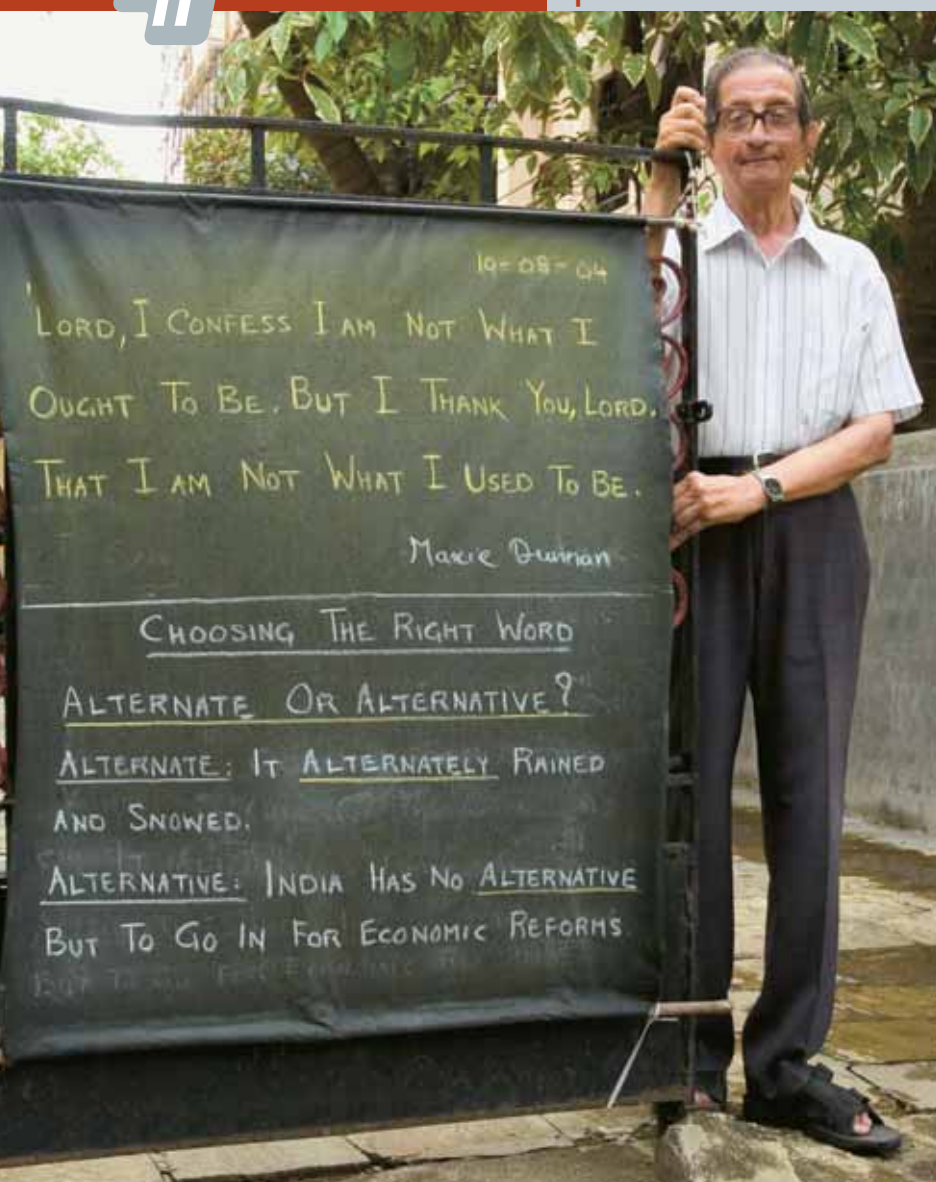 10-08-04
'LORD, I CONFESS I AM NOT WHAT I
OUGHT TO BE. BUT I THANK YOU, LORD.
THAT I AM NOT WHAT I USED TO BE.
Maxie Dunnan
CHOOSING THE RIGHT WORD
ALTERNATE OR ALTERNATIVE?
ALTERNATE: IT ALTERNATELY RAINED
AND SNOWED.
ALTERNATIVE: INDIA HAS NO ALTERNATIVE
BUT TO GO IN FOR ECONOMIC REFORMS